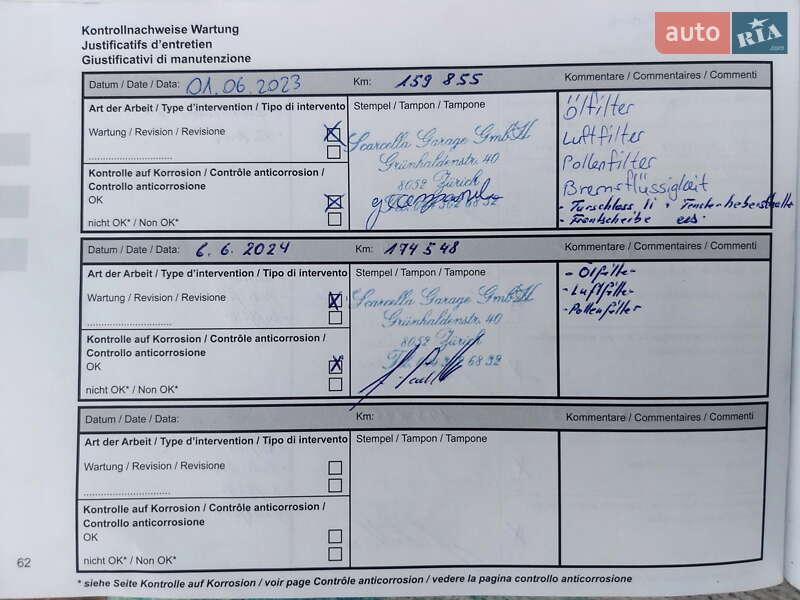 auto RIA.com
Kontrollnachweise Wartung
Justificatifs d'entretien
Giustificativi di manutenzione
Datum / Date / Data: 01.06.2023 Km: 159 855 Kommentare / Commentaires / Commenti
Art der Arbeit / Type d'intervention / Tipo di intervento Stempel / Tampon / Tampone
Ölfilter
Wartung / Revision / Revisione
Luftfilter
Pollenfilter
Bremsflüssigkeit
Scarcella Garage GmbH
Grünhaldenstr. 40
8052 Zürich
Kontrolle auf Korrosion / Contrôle anticorrosion /
Controllo anticorrosione
OK
nicht OK* / Non OK*
- Türschloss li
- Frontscheibe ers.
Datum / Date / Data: 6.6.2024 Km: 174 548 Kommentare / Commentaires / Commenti
Art der Arbeit / Type d'intervention / Tipo di intervento Stempel / Tampon / Tampone
- Ölfilter
Wartung / Revision / Revisione
- Luftfilter
- Pollenfilter
Scarcella Garage GmbH
Grünhaldenstr. 40
8052 Zürich
Kontrolle auf Korrosion / Contrôle anticorrosion /
Controllo anticorrosione
OK
nicht OK* / Non OK*
Datum / Date / Data: Km: Kommentare / Commentaires / Commenti
Art der Arbeit / Type d'intervention / Tipo di intervento Stempel / Tampon / Tampone
Wartung / Revision / Revisione
Kontrolle auf Korrosion / Contrôle anticorrosion /
Controllo anticorrosione
OK
nicht OK* / Non OK*
62
* siehe Seite Kontrolle auf Korrosion / voir page Contrôle anticorrosion / vedere la pagina controllo anticorrosione